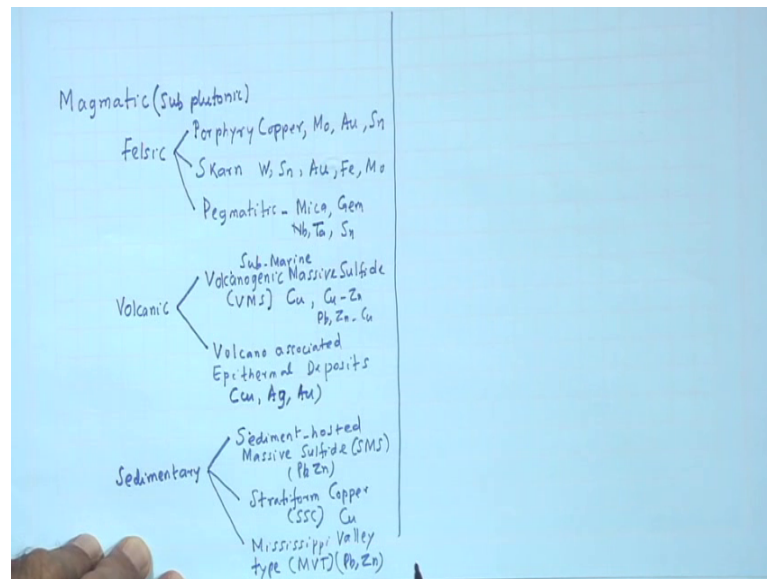 Magmatic (Sub plutonic)
Felsic
Porphyry Copper, Mo, Au, Sn
Skarn W, Sn, Au, Fe, Mo
Pegmatitic - Mica, Gem
Nb, Ta, Sn
Volcanic
Sub-Marine
Volcanogenic Massive Sulfide
(VMS) Cu, Cu-Zn
Pb, Zn-Cu
Volcano associated
Epithermal Deposits
(Cu, Ag, Au)
Sedimentary
Sediment-hosted
Massive Sulfide (SMS)
(Pb Zn)
Stratiform Copper
(SSC) Cu
Mississippi Valley
type (MVT) (Pb, Zn)